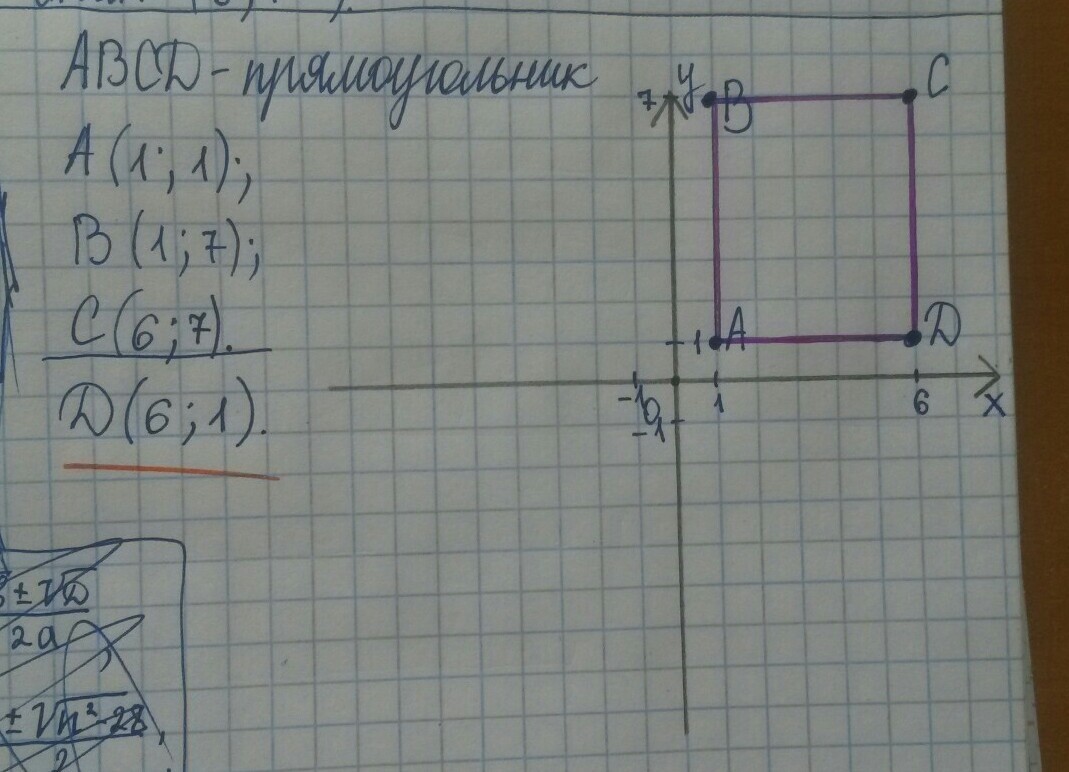 ABCD - прямоугольник
A (1; 1);
B (1; 7);
C (6; 7).
D (6; 1).
7 y B C
1 A D
-1 0 1 6 x
-1
± √D
2a
± √n² - 28,
2